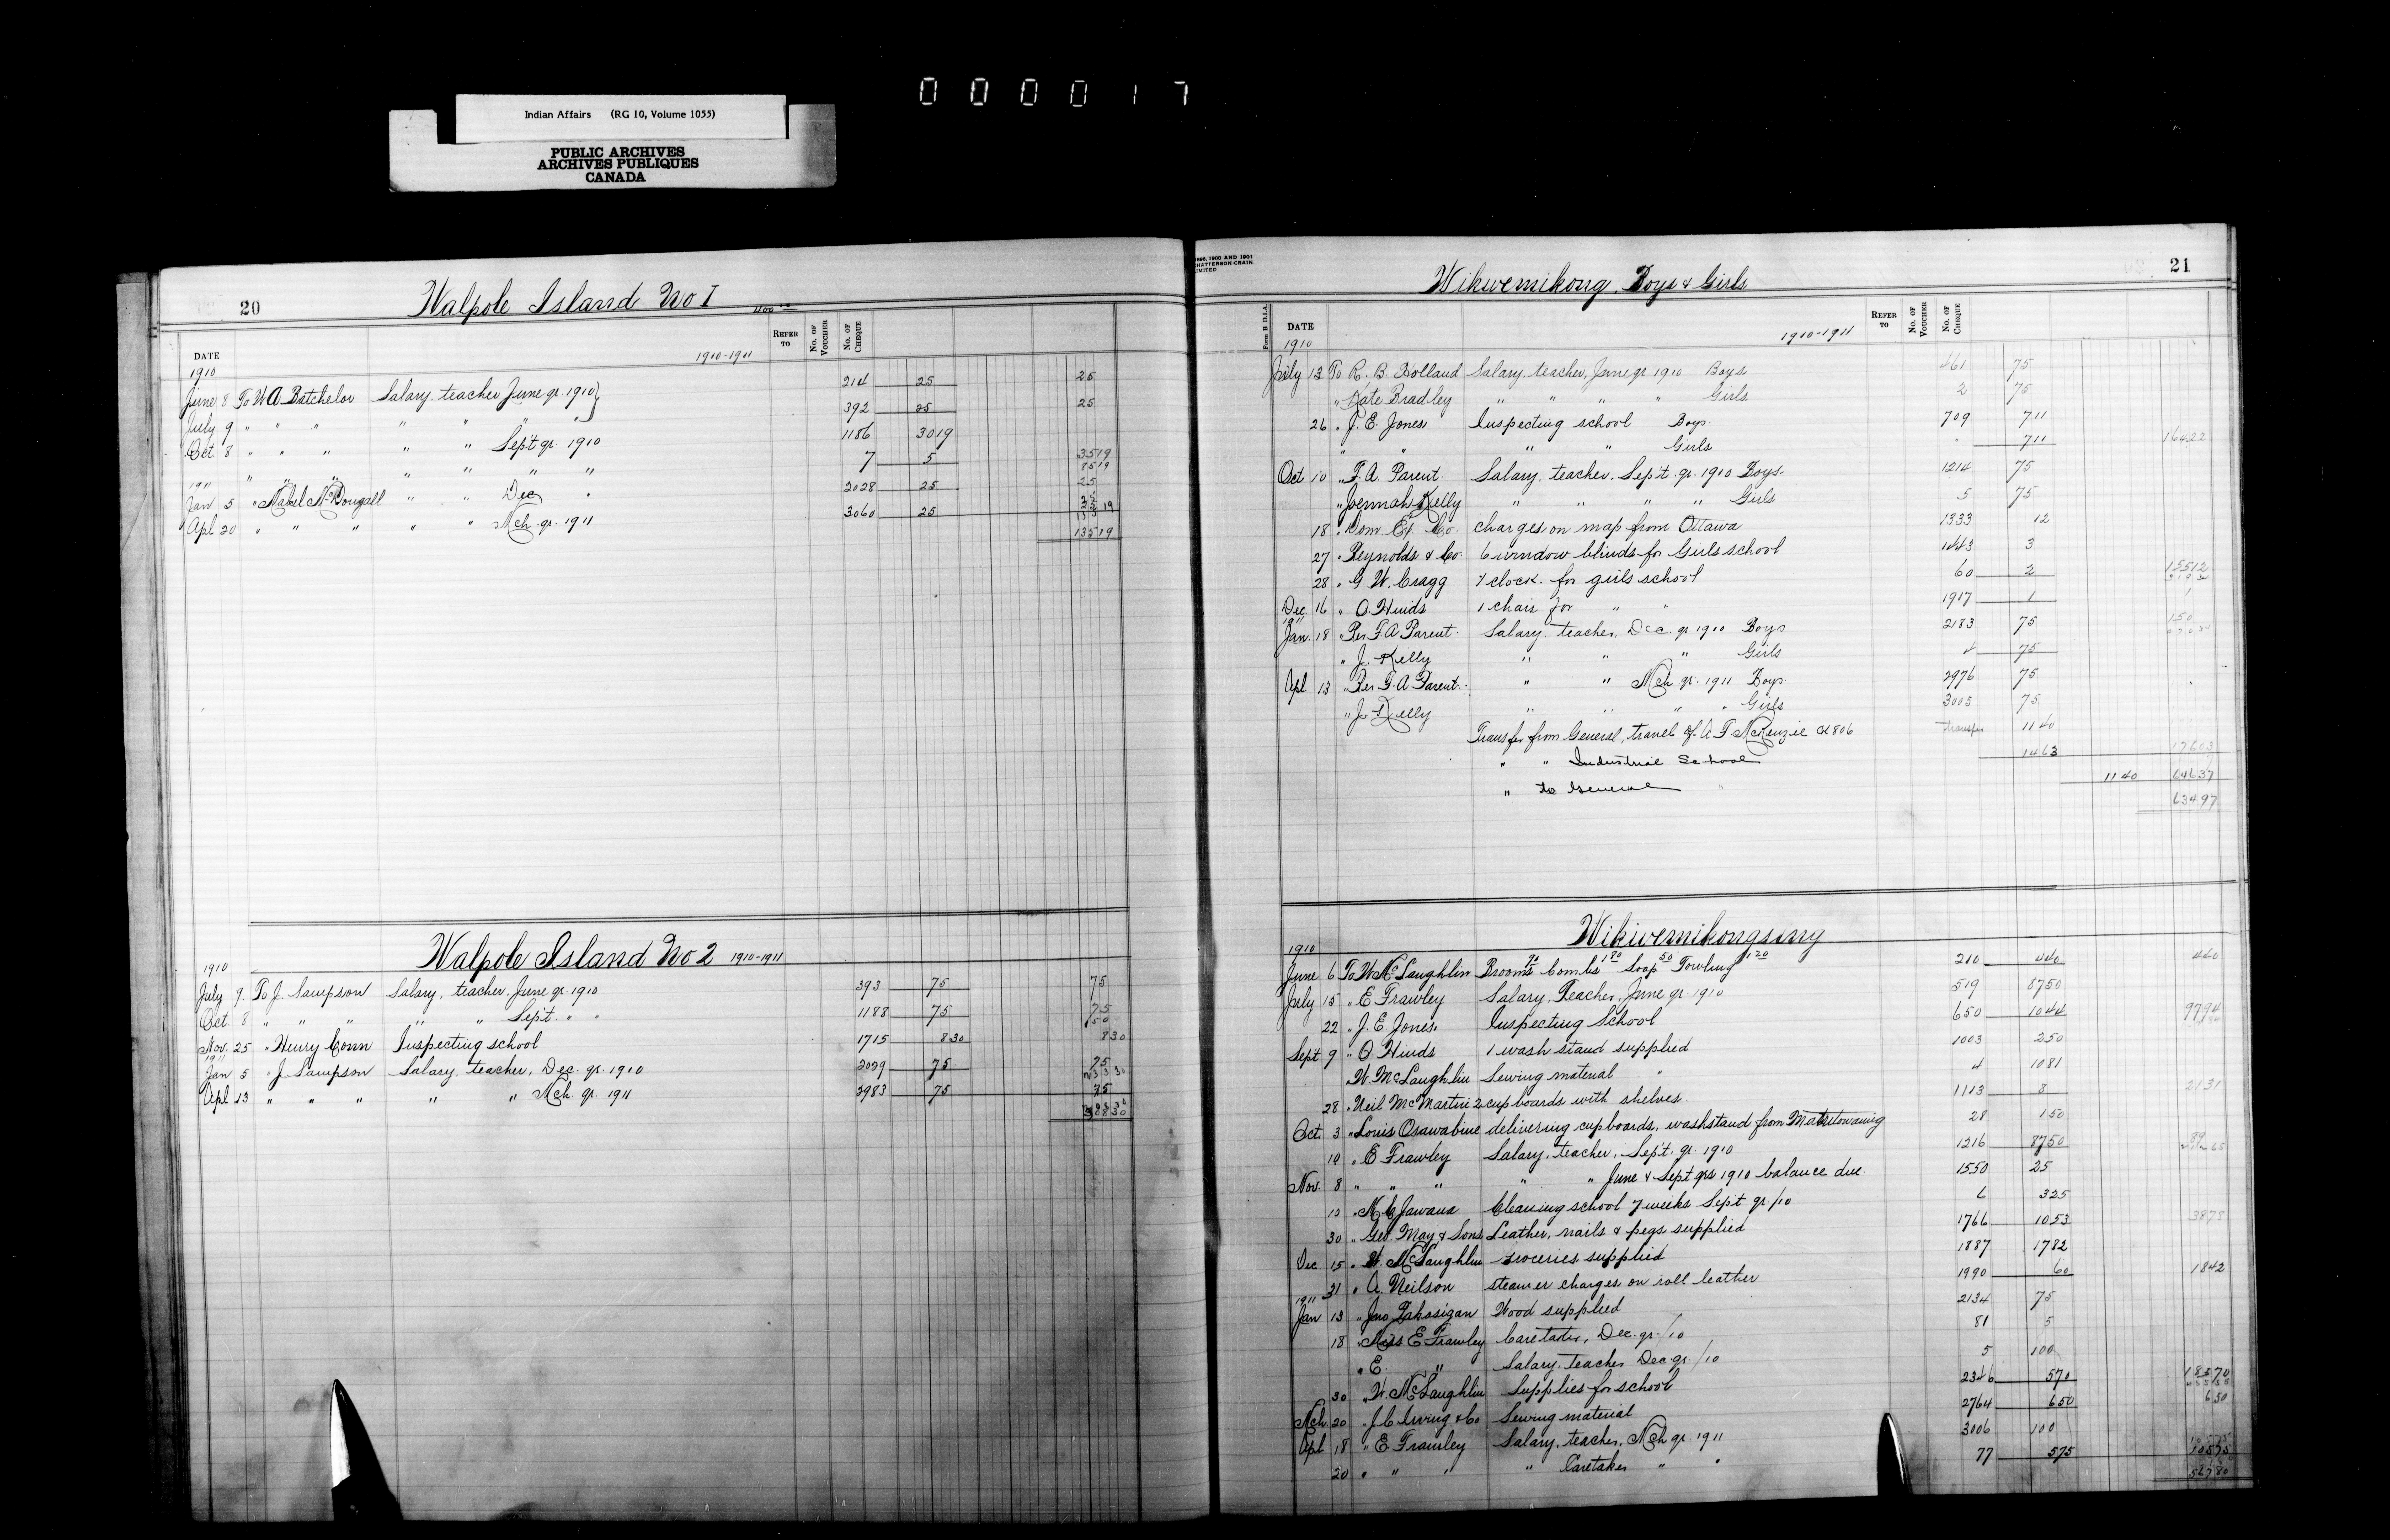 000017
Indian Affairs (RG 10, Volume 1055)
PUBLIC ARCHIVES
ARCHIVES PUBLIQUES
CANADA
20
Walpole Island No 1
DATE 1910-1911 REFER TO No. OF VOUCHER No. OF CHEQUE
1910
June 8 To W A Batchelor Salary teacher June qr. 1910 214 25 25
July 9 " " " " " " " 392 25 25
Oct 8 " " " " " Sept qr. 1910 1186 3019
" " " " " " " 7 5 3519
8519
1911
Jan 5 " Mabel McDougall " " Dec " 2028 25 25
Apl 20 " " " " " Mch qr. 1911 3060 25 25
13519
Walpole Island No 2 1910-1911
1910
July 9 To J. Sampson Salary, teacher, June qr. 1910 393 75 75
Oct 8 " " " " " Sept. " " 1188 75 75
150
Nov. 25 " Henry Conn Inspecting school 1715 830 830
1911
Jan 5 " J Sampson Salary, teacher, Dec. qr. 1910 2099 75 75
Apl 13 " " " " " Mch. qr. 1911 2983 75 75
30830
1898, 1900 AND 1901
CHATTERSON-CRAIN
LIMITED
21
Wikwemikong, Boys & Girls
Form B D.I.A.
DATE 1910-1911 REFER TO No. OF VOUCHER No. OF CHEQUE
1910
July 13 To R. B. Holland Salary, teacher, June qr 1910 Boys 461 75
" Kate Bradley " " " " Girls 2 75
26 " J. E. Jones Inspecting school Boys 709 711
" " " " Girls " 711 16422
Oct 10 " F. A. Parent Salary, teacher, Sept. qr. 1910 Boys 1214 75
" Joennah Kelly " " " " Girls 5 75
18 " Dom Ex. Co. charges on map from Ottawa 1333 12
27 " Reynolds & Co 6 window blinds for Girls school 1443 3
28 " G W. Cragg 1 clock for girls school 60 2 15512
Dec 16 " O. Hinds 1 chair for " " 1917 1 1
1911
Jan 18 " Rev F A Parent Salary, teacher, Dec. qr. 1910 Boys 2183 75 150
" J. Kelly " " " Girls 4 75
Apl 13 " Rev F. A Parent " " Mch qr. 1911 Boys 2976 75
" J. Kelly " " " " Girls 3005 75
Transfer from General, travel of A F McKenzie 806 transfer 1140
" " Industrial School 1463 17603
" to General " 1140 64637
63497
Wikwemikongsing
1910
June 6 To W McLaughlin Brooms 70 Combs 180 Soap 50 Towling 120 210 440 440
July 15 " E Frawley Salary, Teacher, June qr. 1910 519 8750
22 " J. E Jones Inspecting School 650 1044 9794
Sept 9 " O. Hinds 1 wash stand supplied 1003 250
" W. McLaughlin Sewing material " 4 1081
28 " Neil McMartin 2 cupboards with shelves 1113 8 2131
Oct 3 " Louis Osawabine delivering cupboards, washstand from Manitowaning 28 150
10 " E Frawley Salary, teacher, Sept. qr. 1910 1216 8750 89
Nov. 8 " " " " " June & Sept qrs 1910 balance due 1550 25
12 " Cleaning school 7 weeks Sept qr/10 6 325
30 " Geo. May & Sons Leather, nails & pegs supplied 1766 1053 3878
Dec 15 " W. McLaughlin Groceries supplied 1887 1782
31 " A. Neilson steamer charges on roll leather 1990 60 1842
1911
Jan 13 " Jno Wood supplied 2134 75
18 " Miss E Frawley Caretaker, Dec. qr./10 81 5
" E. " Salary, teacher Dec qr./10 5 100
30 " W. McLaughlin Supplies for school 2346 570 18570
Mch 20 " J. C Irving & Co Sewing material 2764 650 650
Apl 18 " E Frawley Salary, teacher, Mch qr. 1911 3006 100
20 " " " " Caretaker " " 77 575 10575
56780